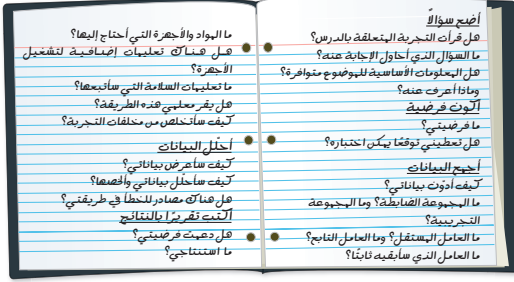 أضع سؤالًا
هل قرأت التجربة المتعلقة بالدرس؟
ما السؤال الذي أحاول الإجابة عنه؟
هل المعلومات الأساسية للموضوع متوافرة؟
وماذا أعرف عنه؟
أكون فرضية
ما فرضيتي؟
هل تعطيني توقعًا يمكن اختباره؟
أجمع البيانات
كيف أدوّن بياناتي؟
ما المجموعة الضابطة؟ وما المجموعة
التجريبية؟
ما العامل المستقل؟ وما العامل التابع؟
ما العامل الذي سأبقيه ثابتًا؟
ما المواد والأجهزة التي أحتاج إليها؟
هل هناك تعليمات إضافية لتشغيل
الأجهزة؟
ما تعليمات السلامة التي سأتبعها؟
هل يقر معلمي هذه الطريقة؟
كيف سأتخلص من مخلفات التجربة؟
أحلّل البيانات
كيف سأعرض بياناتي؟
كيف سأحلّل بياناتي وألخصها؟
هل هناك مصادر للخطأ في طريقتي؟
أكتب تقريرًا بالنتائج
هل دعمت فرضيتي؟
ما استنتاجي؟